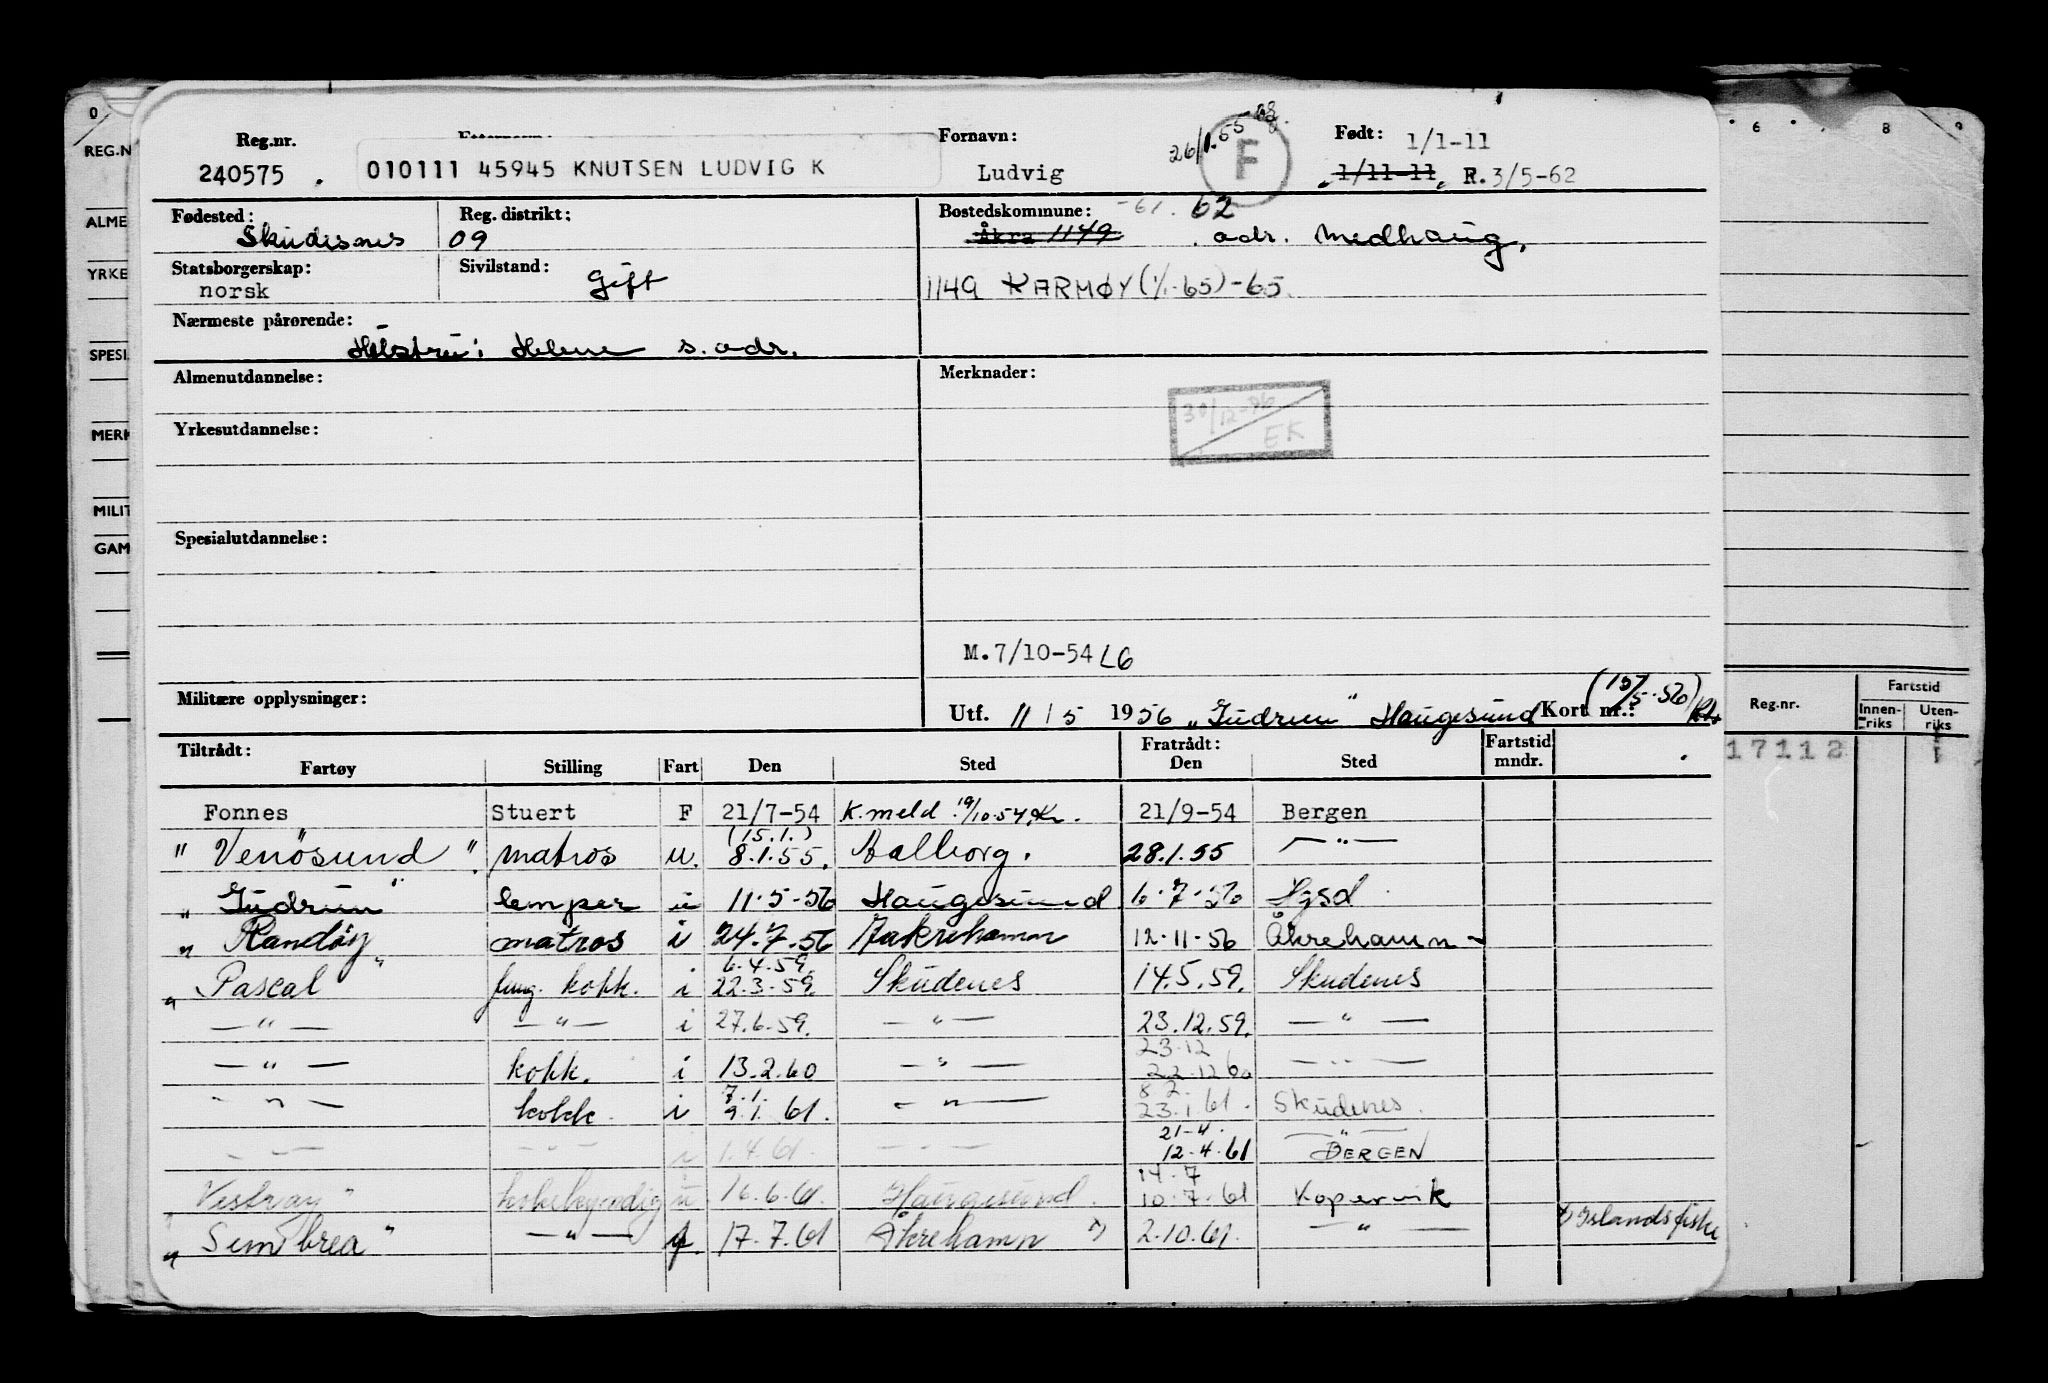 0
6 8 9
Reg.nr. Fornavn: 26/1.55 Født: 1/1-11
240575 . 010111 45945 KNUTSEN LUDVIG K Ludvig F 1/11-11 R.3/5-62
REG.N
Fødested: Reg. distrikt: Bostedskommune: -61. 62
ALME Skudesnes 09 Åkra 1149 adr. Medhaug,
YRKE Statsborgerskap: Sivilstand:
norsk Gift 1149 KARMØY (1/1-65)-65.
Nærmeste pårørende:
SPESI. Hustru: Helene s. adr.
Almenutdannelse: Merknader:
30/12-86
EK
MERK Yrkesutdannelse:
MILIT
GAM Spesialutdannelse:
M.7/10-54 LG
Militære opplysninger: Utf. 11/5 1956 "Gudrun" Haugesund Kort nr.: (15/5-56)
Reg.nr. Fartstid
Innen-riks Uten-riks
17112
Tiltrådt: Fratrådt: Fartstid
Fartøy Stilling Fart Den Sted Den Sted mndr.
Fonnes Stuert F 21/7-54 K.meld 19/10.54 Kr. 21/9-54 Bergen
(15.1.)
"Venösund" matros u. 8.1.55. Aalborg. 28.1.55 — " —
"Gudrun" lemper u 11.5-56 Haugesund 6.7.56 Hgsd.
"Randöy matros i 24.7.56 Aakrehamn 12.11-56 Åkrehamn -
6.4.59.
"Pascal" fung. kokk. i 22.3.59. Skudenes 14.5.59. Skudenes
— " — — " — i 27.6.59. — " — 23.12.59. — " —
23.12
— " — kokk. i 13.2.60 — " — 22.12 60 — " —
7.1. 8 2.
— " — kokk. i 9.1.61. — " — 23.1.61. Skudenes.
21-4. — " —
— " — — " — i 1.4.61. — " — 12.4.61 BERGEN
14.7
Vestray" kokkekyndig u 16.6.61. Haugesund. 10.7.61 Kopervik
"Sembrea" — " — f. 17.7.61 Åkrehamn x) 2.10.61. — " — x) Islandsfiske